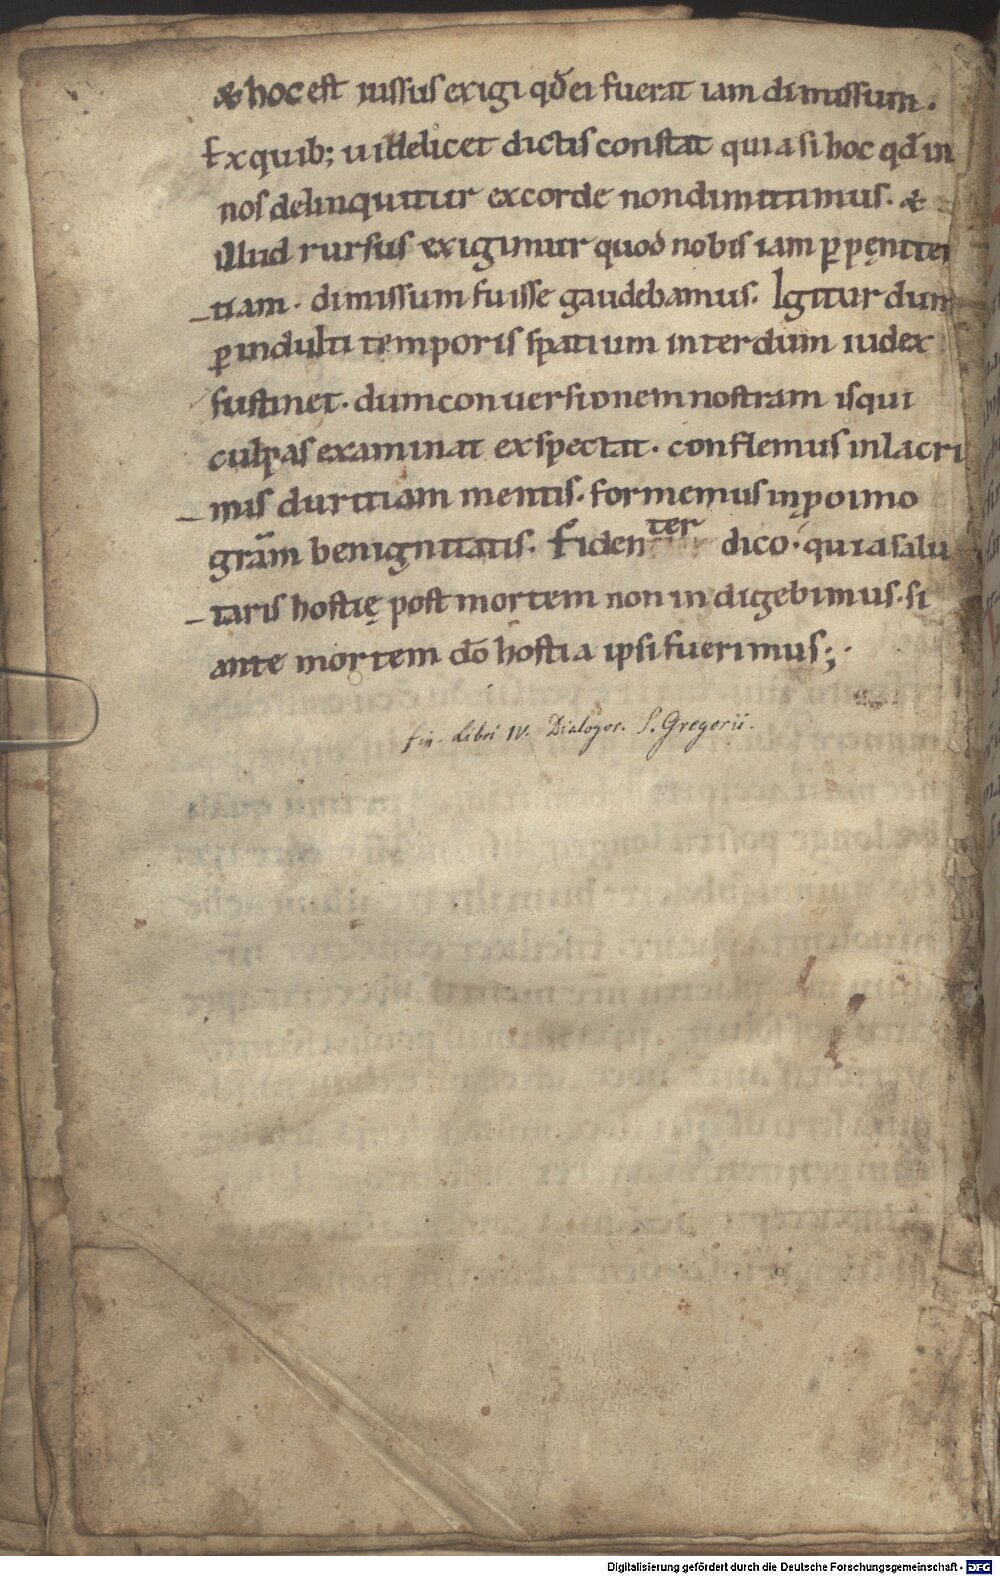 & hoc est iussus exigi qđ ei fuerat iam dimissum.
Ex quib; uidelicet dictis constat quia si hoc qđ in
nos delinquitur ex corde non dimittimus. &
illud rursus exigimur quod nobis iam ꝑ pęniten
tiam. dimissum fuisse gaudebamus. Igitur dum
ꝑ indulti temporis spatium interdum iudex
sustinet. dum conuersionem nostram is qui
culpas examinat exspectat. conflemus in lacri
mis duritiam mentis. formemus in ꝓximo
gr̄am benignitatis. Fidenter dico. quia salu
taris hostię post mortem non indigebimus. si
ante mortem dō hostia ipsi fuerimus;.
fin. Libri IV. Dialogor. S. Gregorii.
Digitalisierung gefördert durch die Deutsche Forschungsgemeinschaft - DFG